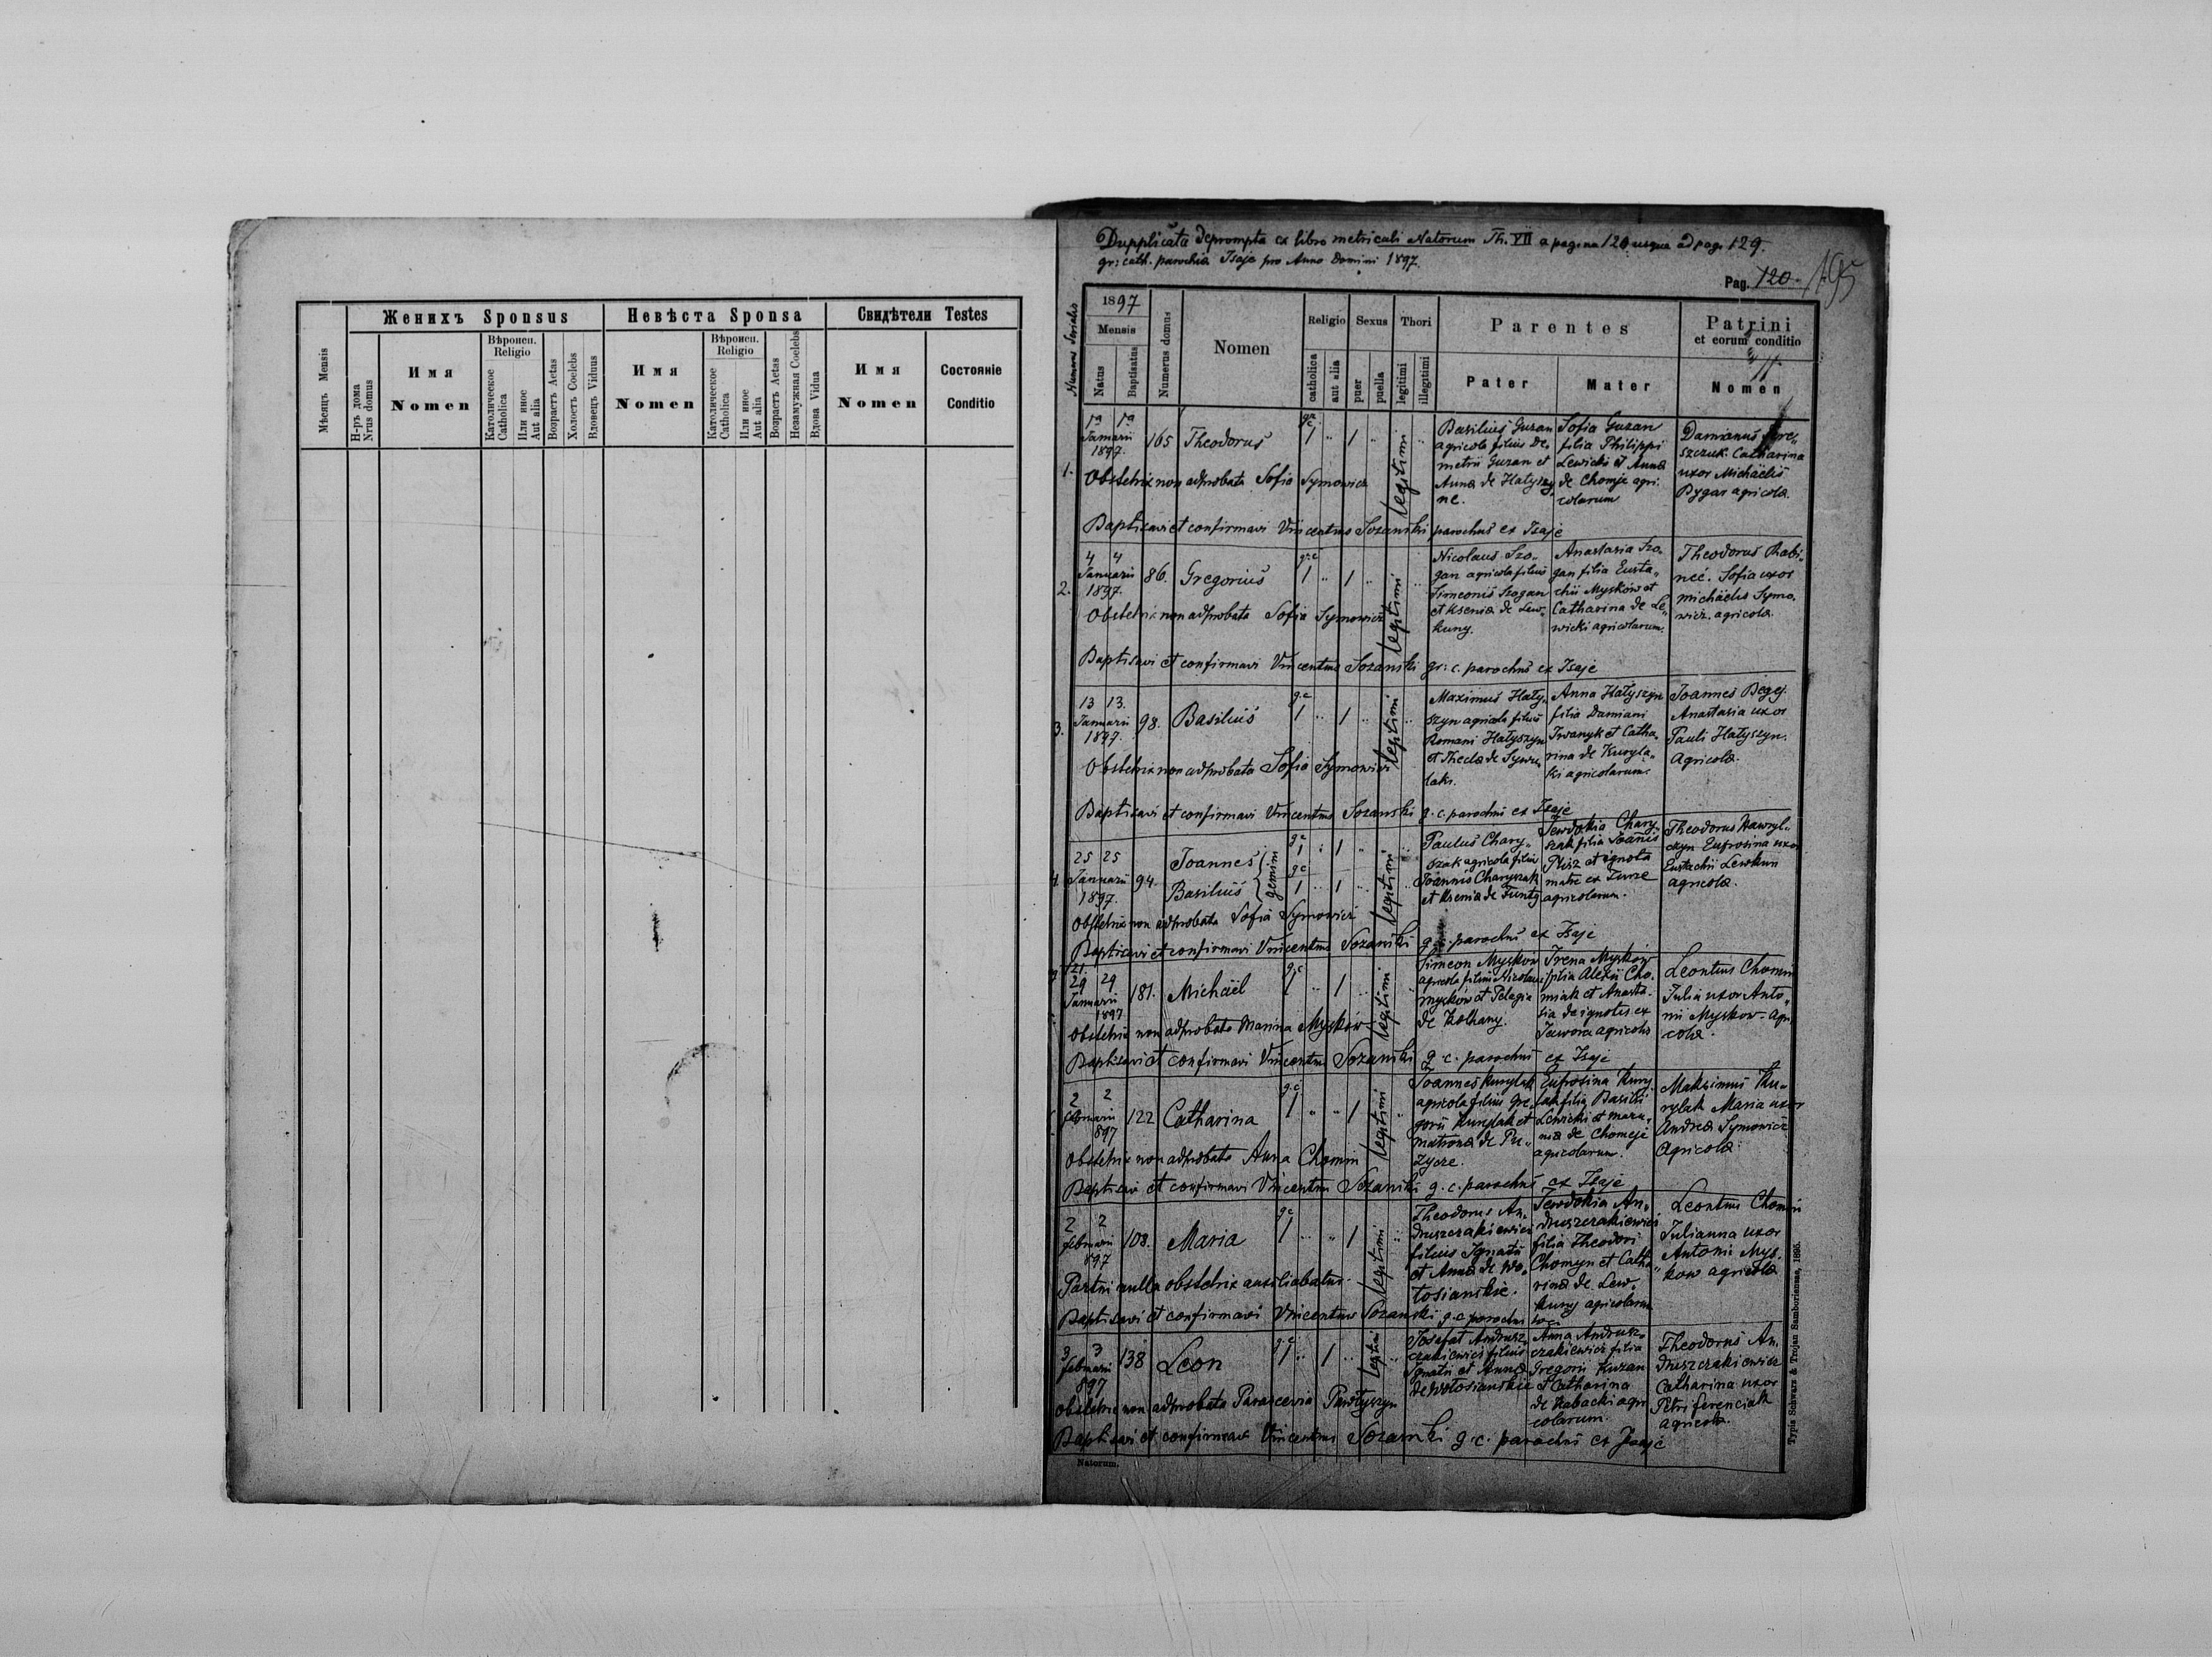 Женихъ Sponsus
Невѣста Sponsa
Свидѣтели Testes
Мѣсяцъ Mensis
Н-ръ дома
Nrus domus
Имя
Nomen
Вѣроисп.
Religio
Католическое
Catholica
Или иное
Aut alia
Возрастъ Aetas
Холостъ Coelebs
Вдовецъ Viduus
Имя
Nomen
Вѣроисп.
Religio
Католическое
Catholica
Или иное
Aut alia
Возрастъ Aetas
Незамужная Coelebs
Вдова Vidua
Имя
Nomen
Состояніе
Conditio
Dupplicata deprompta ex libro metricali Natorum Th. VII a pagina 120 usque ad pag. 129.
gr: cath. parochia Isaje pro Anno Domini 1897.
Pag. 120
195
Numerus Serialis
1897
Mensis
Natus
Baptisatus
Numerus domus
Nomen
Religio
catholica
aut alia
Sexus
puer
puella
Thori
legitimi
illegitimi
Parentes
Pater
Mater
Patrini
et eorum conditio
Nomen
1.
1a 1a
Januarii
1897.
165
Theodorus
gr c
1 " 1 "
legitimi
Basilius Guzan
agricola filius De-
metrii Guzan et
Anna de Hałyszy
ne.
Sofia Guzan
filia Philippi
Lewicki et Anna
de Chomje agri-
colarum
Damianus
szczuk. Catharina
uxor Michäelis
Pygar agricola.
Obstetrix non adprobata Sofia Symowicz
Baptisavi et confirmavi Vincentius Sozanski parochus ex Isaje
2.
4 4
Januarii
1897.
86.
Gregorius
g c
1 " 1 "
legitimi
Nicolaus Szo-
gan agricola filius
Simeonis Szogan
et Ksenia de Lew-
kuny.
Anastasia Szo-
gan filia Eusta-
chii Myskow et
Catharina de Le-
wicki agricolarum.
Theodorus Rabi-
neć. Sofia uxor
Michäelis Symo-
wicz. agricola.
Obstetrix non adprobata Sofia Symowicz
Baptisavi et confirmavi Vincentius Sozanski gr: c. parochus ex Isaje
3.
13 13.
Januarii
1897.
98.
Basilius
g c
1 " 1 "
legitimi
Maximus Hały-
szyn agricola filius
Romani Hałyszyn
et Thecla de
laki.
Anna Hałyszyn
filia Damiani
Iwanyk et Catha-
rina de Kuryla-
ki agricolarum.
Joannes Begej.
Anastasia uxor
Pauli Hałyszyn.
Agricola.
Obstetrix non adprobata Sofia Symowicz
Baptisavi et confirmavi Vincentius Sozanski g. c. parochus ex Isaje
4.
25 25
Januarii
1897.
94.
Joannes
Basilius
gemini
g c
1 " 1 "
g c
1 " 1 "
legitimi
Paulus Chary-
szak agricola filius
Joannis Charyszak
et Ksenia de
Jewdokia Chary-
szak filia Joannis
et ignota
matre ex Turze
agricolarum.
Theodorus Hawryl-
Eufrosina uxor
Eustachii Lewkun
agricola.
Obstetrix non adprobata Sofia Symowicz
Baptisavi et confirmavi Vincentius Sozanski g. c. parochus ex Isaje
121.
29 29
Januarii
1897
181.
Michäel
g c
1 " 1 "
legitimi
Simeon Myskow
agricola filius Nicolai
Myskow et Pelagia
de Kolhany.
Irena Myskow
filia Alexii Cho-
miak et Anasta-
sia de ignotis ex
Jawora agricolis
Leontius Chomin
Julia uxor Anto-
nii Myskow - agri
cola.
Obstetrix non adprobata Marina Myskow
Baptisavi et confirmavi Vincentius Sozanski g. c. parochus ex Isaje
2 2
Februarii
897
122
Catharina
g c
1 " " 1
legitimi
Joannes Kurylak
agricola filius Gre-
gorii Kurylak et
Matrona de Pu-
zycze.
Eufrosina Kury-
lak filia Basilii
Lewicki et Mary-
na de Chomeje
agricolarum.
Maksimus Ku-
rylak Maria uxor
Andrea Symowicz
Agricola
Obstetrix non adprobata Anna Chomin
Baptisavi et confirmavi Vincentius Sozanski g. c. parochus ex Isaje
2 2
Februarii
897
108.
Maria
g c
1 " " 1
legitimi
Theodorus An-
druszczakiewicz
filius Ignatii
et Anna de Wo-
łosianskie.
Jewdokia An-
druszczakiewicz
filia Theodori
Chomyn et Catha-
rina de Lew-
kuny agricolarum
Leontius Chomin
Julianna uxor
Antonii Mys-
kow agricola
Partui nulla obstetrix auxiliabatur.
Baptisavi et confirmavi Vincentius Sozanski g. c. parochus loci
3 3
Februarii
897
138
Leon
g c
1 " 1 "
legitimi
Josafat Andrusz-
czakiewicz filius
Ignatii et Anna
de Wołosianskie
Anna Andrusz-
czakiewicz filia
Gregorii Kuzan
et Catharina
de Kabacki agri
colarum.
Theodorus An-
druszczakiewicz
Catharina uxor
Petri Ferenciak
agricola.
Obstetrix non adprobata Parascevia Pawłyszyn
Baptisavi et confirmavi Vincentius Sozanski g. c. parochus ex Isaje
Natorum.
Typis Schwarz & Trojan Samboriensae, 1895.